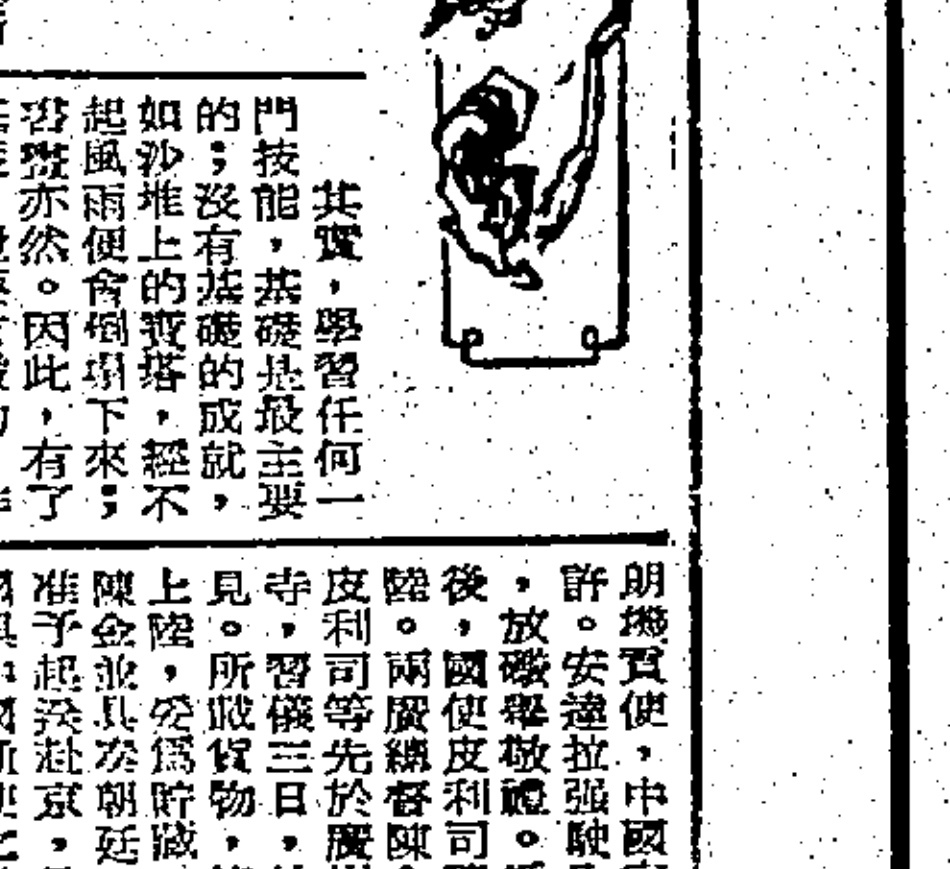 其實，學習任何一
門技能，基礎是最主要
的；沒有基礎的成就，
如沙堆上的寶塔，經不
起風雨便會倒塌下來；
亦然。因此，有了
貢使，中國
許。安達拉强駛
，放礮舉敬禮。
後，國使皮利司
陸。兩廣總督陳
皮利司等先於廣
寺，習儀三日，
見。所載貨物，
上陸，妥為貯藏
陳金並具次朝廷
准予起送赴京，